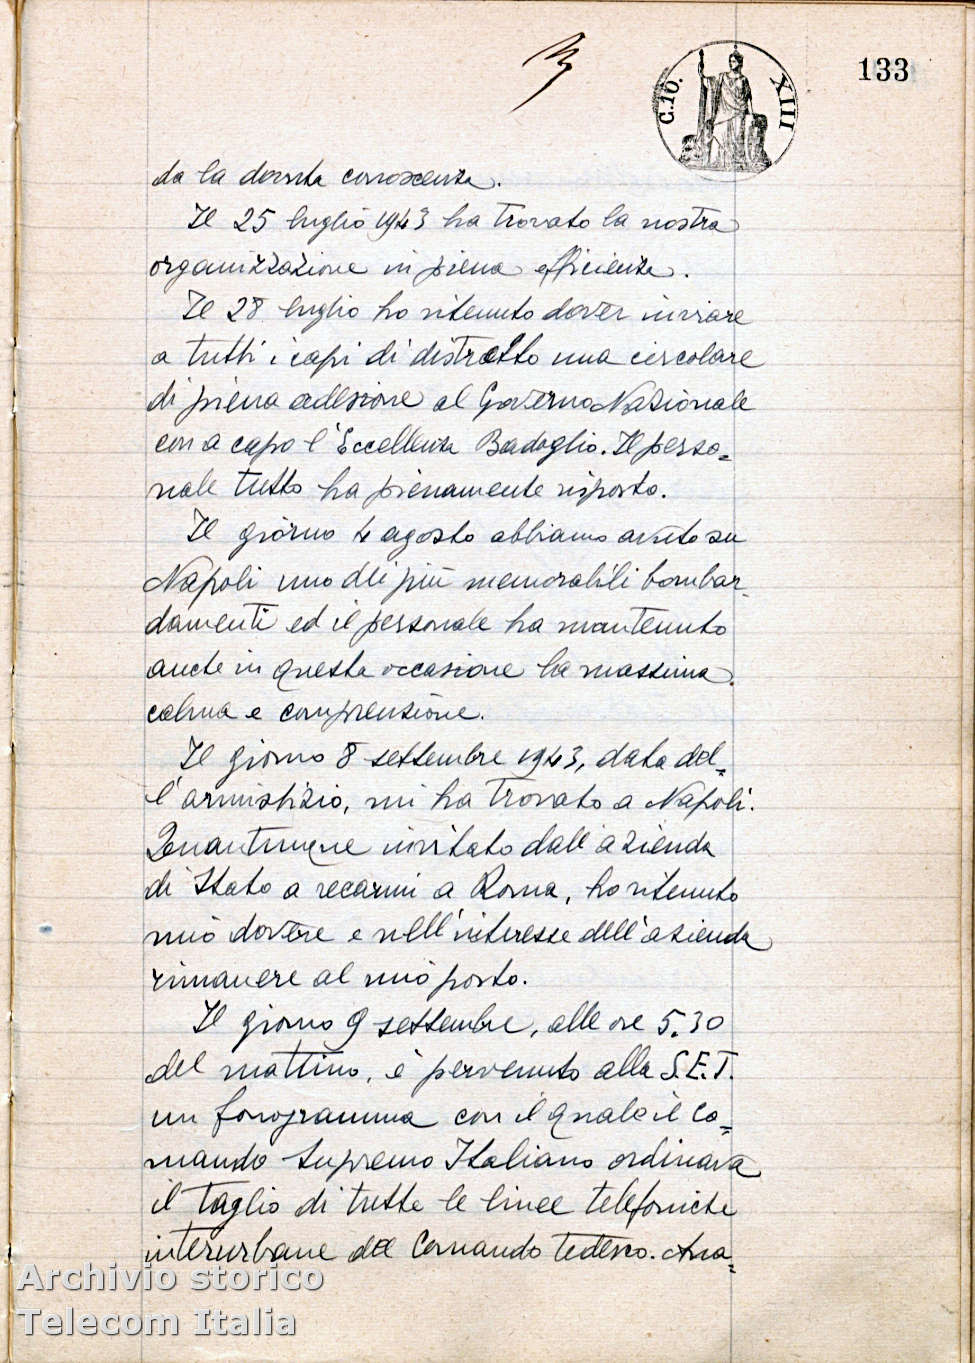 133
C.10.
XIII
da la dovuta conoscenza.
Il 25 luglio 1943 ha trovato la nostra
organizzazione in piena efficienza.
Il 28 luglio ho ritenuto dover inviare
a tutti i capi di distretto una circolare
di piena adesione al Governo Nazionale
con a capo l'Eccellenza Badoglio. Il perso=
nale tutto ha pienamente risposto.
Il giorno 4 agosto abbiamo avuto su
Napoli uno dei più memorabili bombar-
damenti ed il personale ha mantenuto
anche in questa occasione la massima
calma e comprensione.
Il giorno 8 settembre 1943, data del=
l'armistizio, mi ha trovato a Napoli.
Quantunque invitato dall'azienda
di Stato a recarmi a Roma, ho ritenuto
mio dovere e nell'interesse dell'azienda
rimanere al mio posto.
Il giorno 9 settembre, alle ore 5.30
del mattino, è pervenuto alla S.E.T.
un fonogramma con il quale il Co=
mando Supremo Italiano ordinava
il taglio di tutte le linee telefoniche
interurbane del Comando tedesco. Ana=
Archivio storico
Telecom Italia